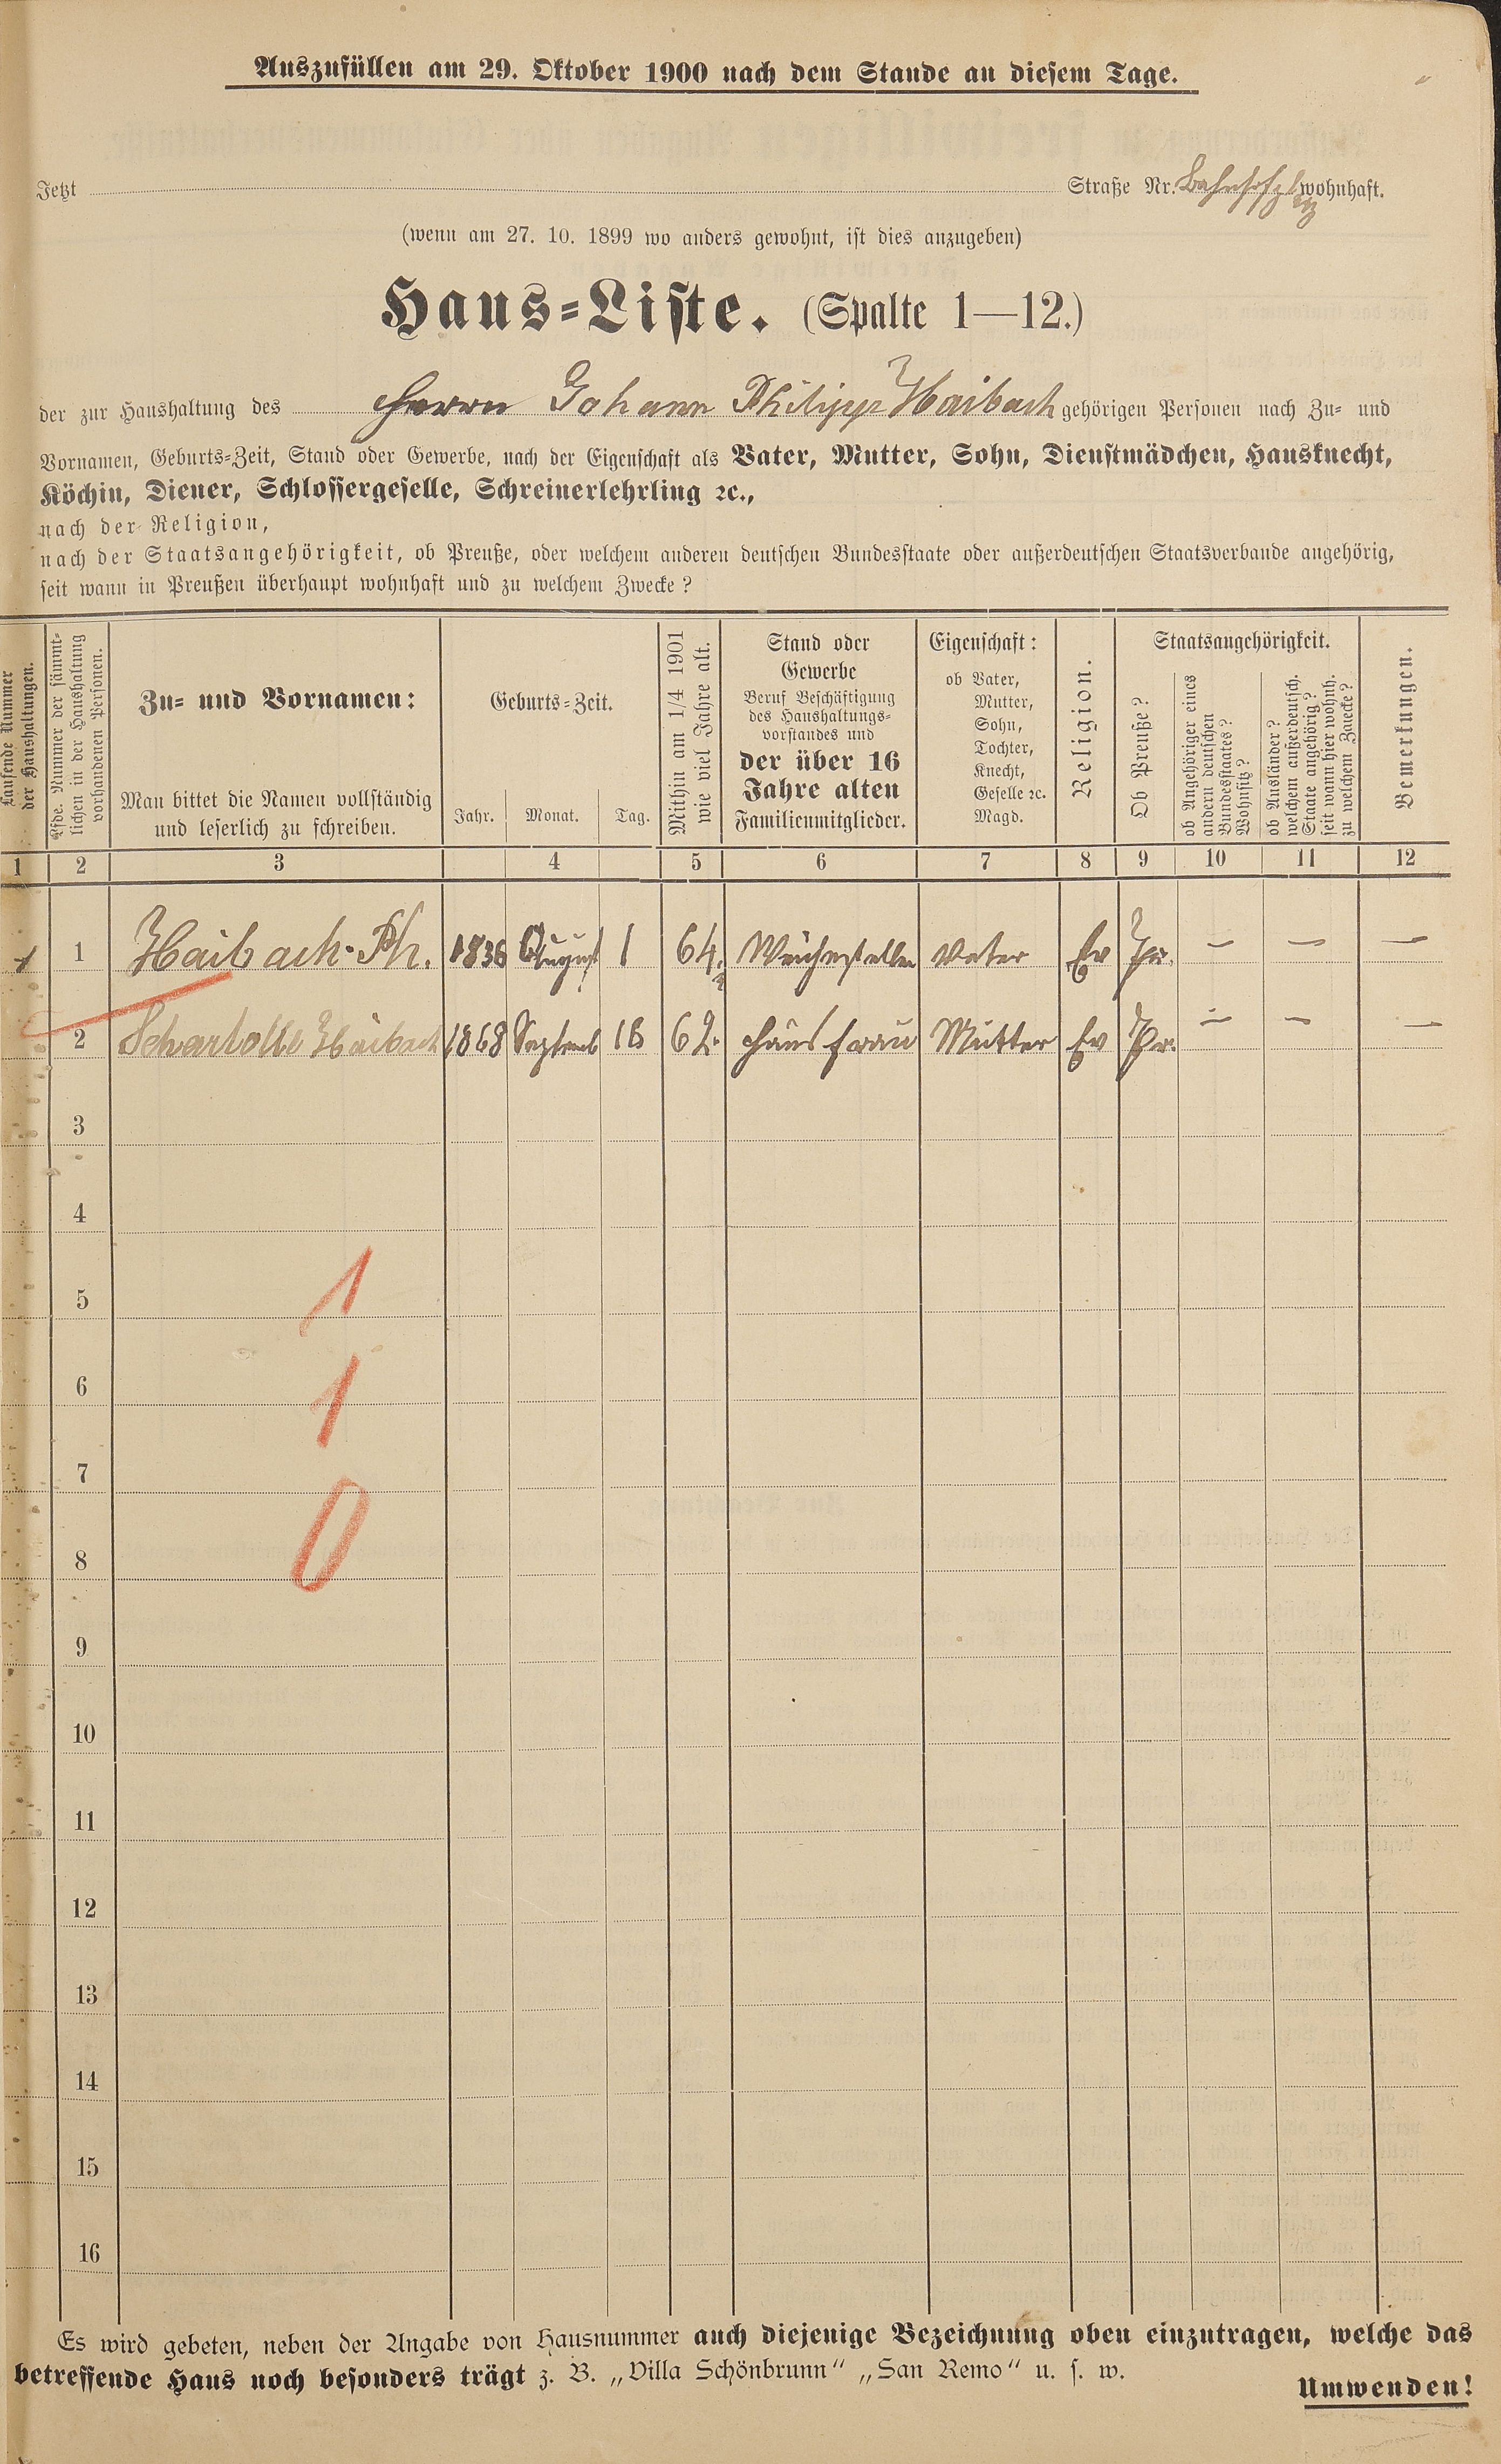 Auszufüllen am 29. Oktober 1900 nach dem Stande an diesem Tage.
Jetzt Straße Nr. Bahnhofplatz wohnhaft.
(wenn am 27. 10. 1899 wo anders gewohnt, ist dies anzugeben)
Haus-Liste. (Spalte 1—12.)
der zur Haushaltung des Herrn Johann Philipp Haibach gehörigen Personen nach Zu- und
Vornamen, Geburts-Zeit, Stand oder Gewerbe, nach der Eigenschaft als Vater, Mutter, Sohn, Dienstmädchen, Hausknecht,
Köchin, Diener, Schlossergeselle, Schreinerlehrling ꝛc.,
nach der Religion,
nach der Staatsangehörigkeit, ob Preuße, oder welchem anderen deutschen Bundesstaate oder außerdeutschen Staatsverbande angehörig,
seit wann in Preußen überhaupt wohnhaft und zu welchem Zwecke?
Laufende Nummer
der Haushaltungen.
Lfde. Nummer der sämmt-
lichen in der Haushaltung
vorhandenen Personen.
Zu- und Vornamen:
Man bittet die Namen vollständig
und leserlich zu schreiben.
Geburts-Zeit.
Jahr. Monat. Tag.
Mithin am 1/4 1901
wie viel Jahre alt.
Stand oder
Gewerbe
Beruf Beschäftigung
des Haushaltungs-
vorstandes und
der über 16
Jahre alten
Familienmitglieder.
Eigenschaft:
ob Vater,
Mutter,
Sohn,
Tochter,
Knecht,
Geselle ꝛc.
Magd.
Religion.
Staatsangehörigkeit.
Ob Preuße?
ob Angehöriger eines
andern deutschen
Bundesstaates?
Wohnsitz?
ob Ausländer?
welchem außerdeutsch.
Staate angehörig?
seit wann hier wohnh.
zu welchem Zwecke?
Bemerkungen.
1 2 3 4 5 6 7 8 9 10 11 12
1 1 Haibach Ph. 1836 August 1 64. Weichensteller Vater Ev Pr. — — —
2 Scharlotte Haibach 1868 Septemb 18 62. Hausfrau Mutter Ev Pr. — — —
3
4
5
1
6
1
7
0
8
9
10
11
12
13
14
15
16
Es wird gebeten, neben der Angabe von Hausnummer auch diejenige Bezeichnung oben einzutragen, welche das
betreffende Haus noch besonders trägt z. B. „Villa Schönbrunn“ „San Remo“ u. s. w.
Umwenden!